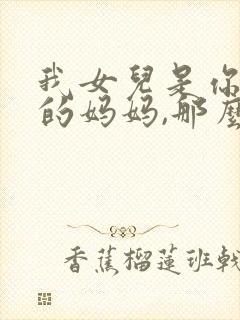 我女兒是你
的妈妈,那麼
香蕉榴蓮班戟